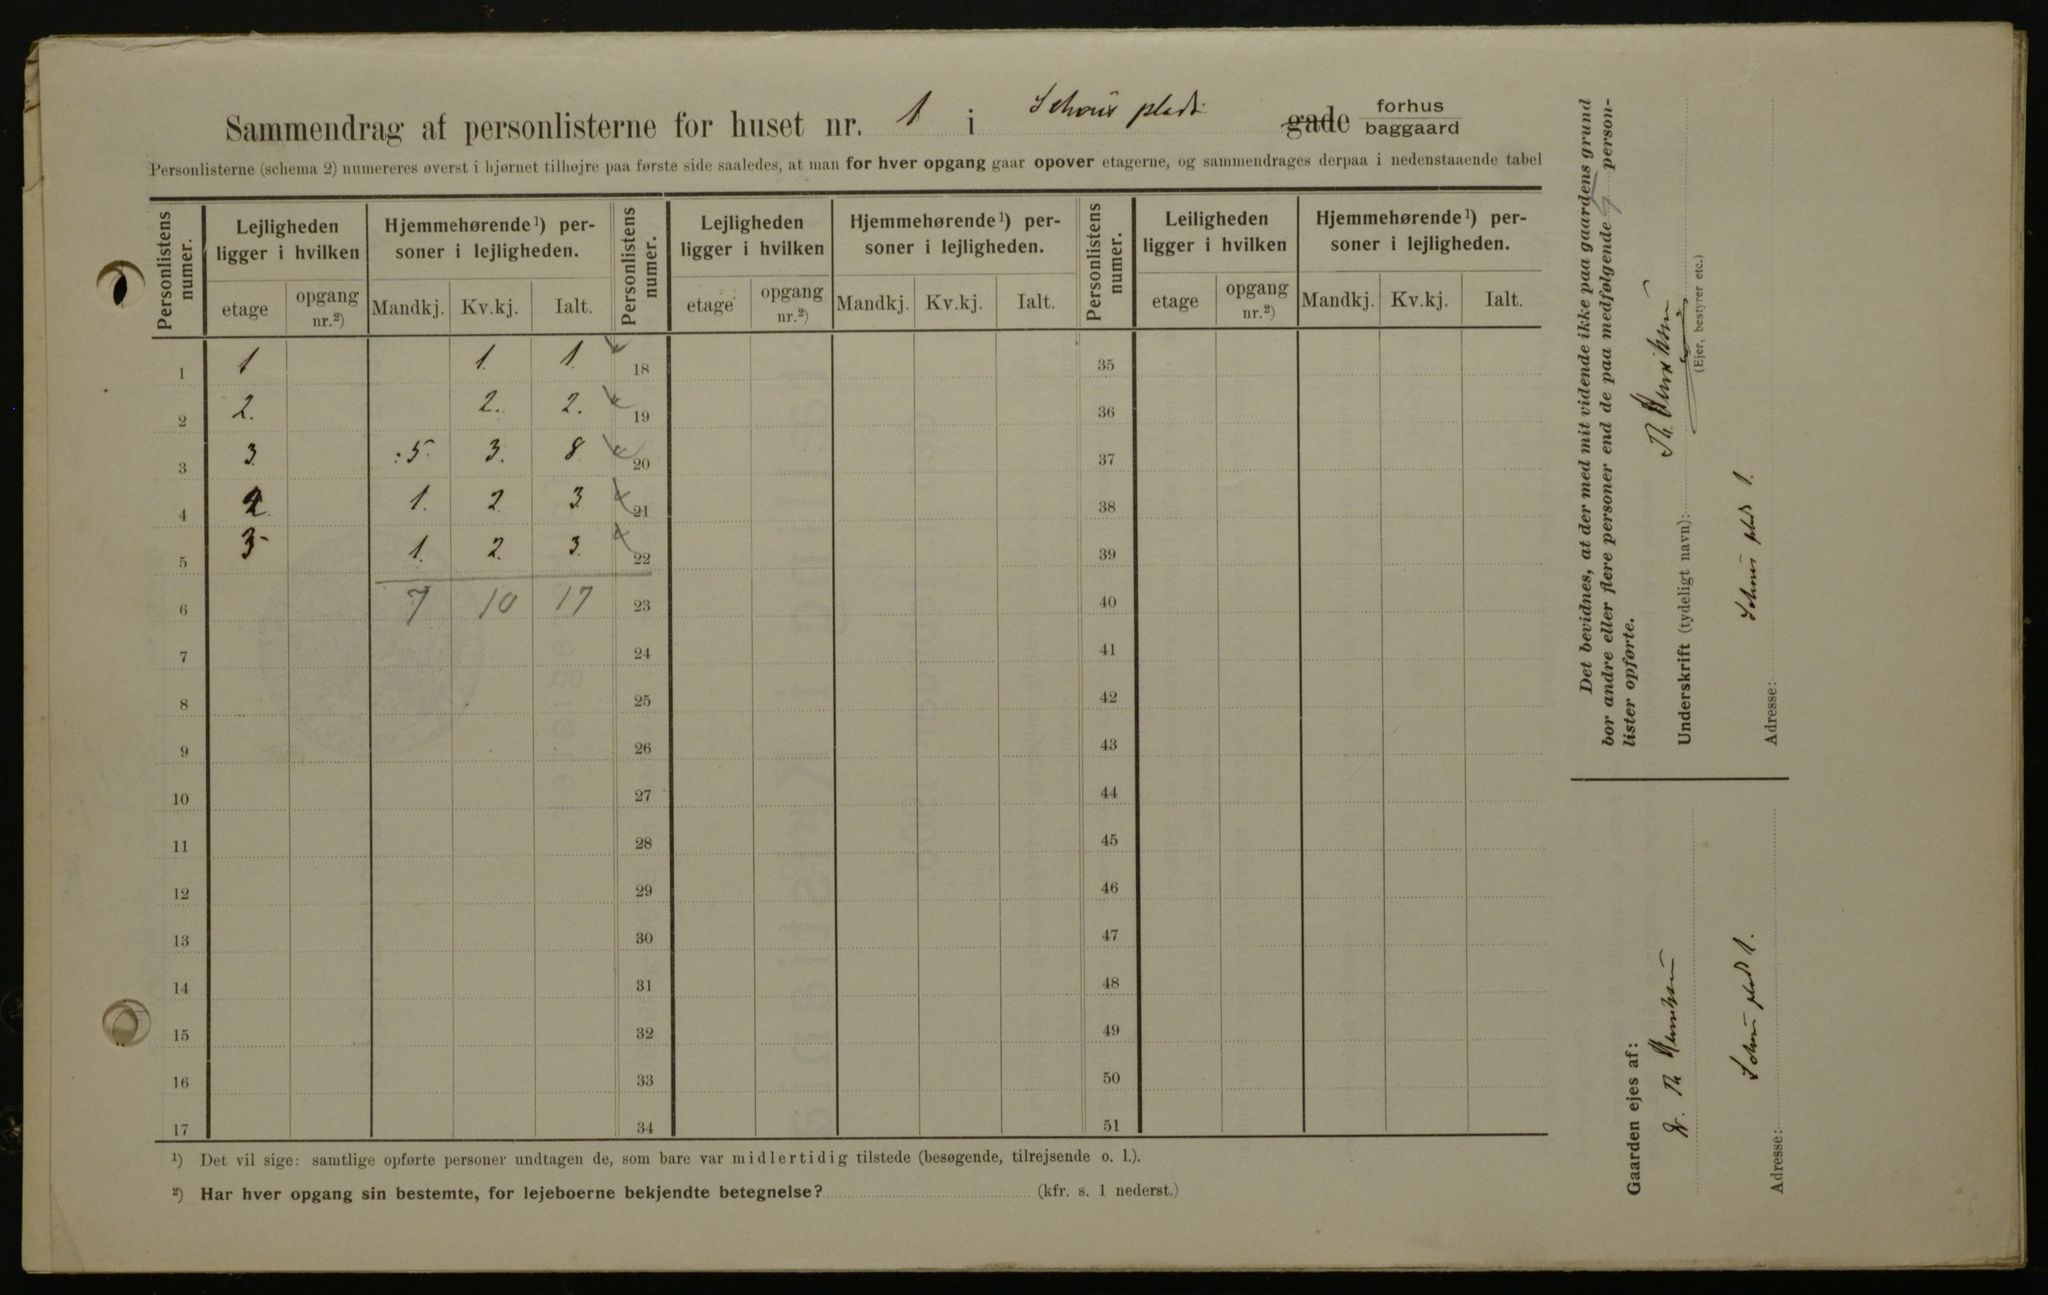 Sammendrag af personlisterne for huset nr. 1 i Schous plads gade forhus
baggaard
Personlisterne (schema 2) numereres øverst i hjørnet tilhøjre paa første side saaledes, at man for hver opgang gaar opover etagerne, og sammendrages derpaa i nedenstaaende tabel
Personlistens numer. Lejligheden ligger i hvilken Hjemmehørende¹) personer i lejligheden. Personlistens numer. Lejligheden ligger i hvilken Hjemmehørende¹) personer i lejligheden. Personlistens numer. Leiligheden ligger i hvilken Hjemmehørende¹) personer i lejligheden.
etage opgang nr.²) Mandkj. Kv.kj. Ialt. etage opgang nr.²) Mandkj. Kv.kj. Ialt. etage opgang nr.²) Mandkj. Kv.kj. Ialt.
1 1 1. 1. 18 35
2 2. 2. 2. 19 36
3 3. 5 3. 8 20 37
4 1. 2 3. 21 38
5 3 1. 2. 3. 22 39
6 7 10 17 23 40
7 24 41
8 25 42
9 26 43
10 27 44
11 28 45
12 29 46
13 30 47
14 31 48
15 32 49
16 33 50
17 34 51
¹) Det vil sige: samtlige opførte personer undtagen de, som bare var midlertidig tilstede (besøgende, tilrejsende o. l.).
²) Har hver opgang sin bestemte, for lejeboerne bekjendte betegnelse? (kfr. s. 1 nederst.)
Det bevidnes, at der med mit vidende ikke paa gaardens grund
bor andre eller flere personer end de paa medfølgende person-
lister opførte.
Underskrift (tydeligt navn): Th.
(Ejer, bestyrer etc.)
Adresse: Schous plads 1.
Gaarden ejes af:
Th
Adresse: Schous plads 1.